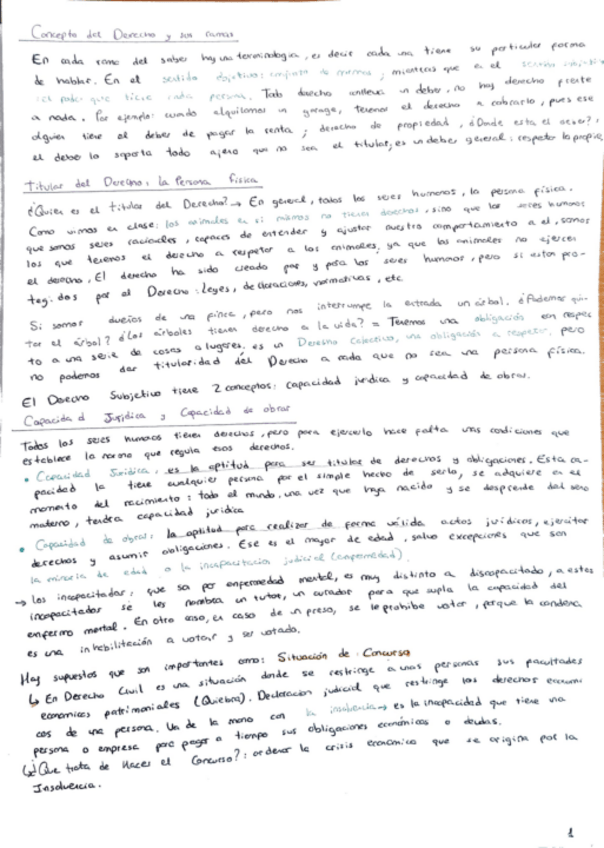 Concepto del Derecho y sus ramas
En cada rama del saber hay una terminología, es decir cada una tiene su particular forma
de hablar. En el sentido objetivo: conjunto de normas; mientras que en el sentido subjetivo
el poder que tiene cada persona. Todo derecho conlleva un deber, no hay derecho frente
a nada. Por ejemplo: cuando alquilamos un garage, tenemos el derecho a cobrarlo, pues ese
alguien tiene el deber de pagar la renta; derecho de propiedad, ¿Donde esta el deber?:
el deber lo soporta todo ajeno que no sea el titular, es un deber general: respetar la propie
Titular del Derecho: la Persona física
¿Quien es el titular del Derecho? → En general, todos los seres humanos, la persona física.
Como vimos en clase: los animales en si mismos no tienen derechos, sino que los seres humanos
que somos seres racionales, capaces de entender y ajustar nuestro comportamiento a el, somos
los que tenemos el derecho a respetar a los animales, ya que los animales no ejercen
el derecho. El derecho ha sido creado por y para los seres humanos, pero si estan pro-
tegidos por el Derecho: leyes, declaraciones, normativas, etc
Si somos dueños de una finca, pero nos interrumpe la entrada un árbol. ¿Podemos qui-
tar el árbol? ¿Los árboles tienen derecho a la vida? = Tenemos una obligación con respec
to a una serie de cosas o lugares, es un Derecho Colectivo, una obligación a respetar, pero
no podemos dar titularidad del Derecho a nada que no sea una persona física.
El Derecho Subjetivo tiene 2 conceptos: capacidad jurídica y capacidad de obrar.
Capacidad Jurídica y Capacidad de obrar
Todos los seres humanos tienen derechos, pero para ejercerlo hace falta unas condiciones que
establece la norma que regula esos derechos.
• Capacidad Jurídica: es la aptitud para ser titular de derechos y obligaciones. Esta ca-
pacidad la tiene cualquier persona por el simple hecho de serlo, se adquiere en el
momento del nacimiento: todo el mundo, una vez que haya nacido y se desprende del seno
materno, tendra capacidad jurídica
• Capacidad de obrar: la aptitud para realizar de forma válida actos jurídicos, ejercitar
derechos y asumir obligaciones. Ese es el mayor de edad, salvo excepciones que son
la minoría de edad o la incapacitacion judicial (enfermedad).
→ Los incapacitados, que sea por enfermedad mental, es muy distinto a discapacitado, a estos
incapacitados se les nombra un tutor, un curador para que supla la capacidad del
enfermo mental. En otro caso, es caso de un preso, se le prohibe votar, porque la condena
es una inhabilitación a votar y ser votado.
Hay supuestos que son importantes como: Situación de Concurso
↳ En Derecho Civil es una situación donde se restringe a unas personas sus facultades
economicas patrimoniales (Quiebra). Declaracion judicial que restringe los derechos economi
cos de una persona. Va de la mano con la insolvencia → es la incapacidad que tiene una
persona o empresa para pagar a tiempo sus obligaciones económicas o deudas.
↳ ¿Que trata de Hacer el Concurso?: ordenar la crisis económica que se origina por la
Insolvencia.
1